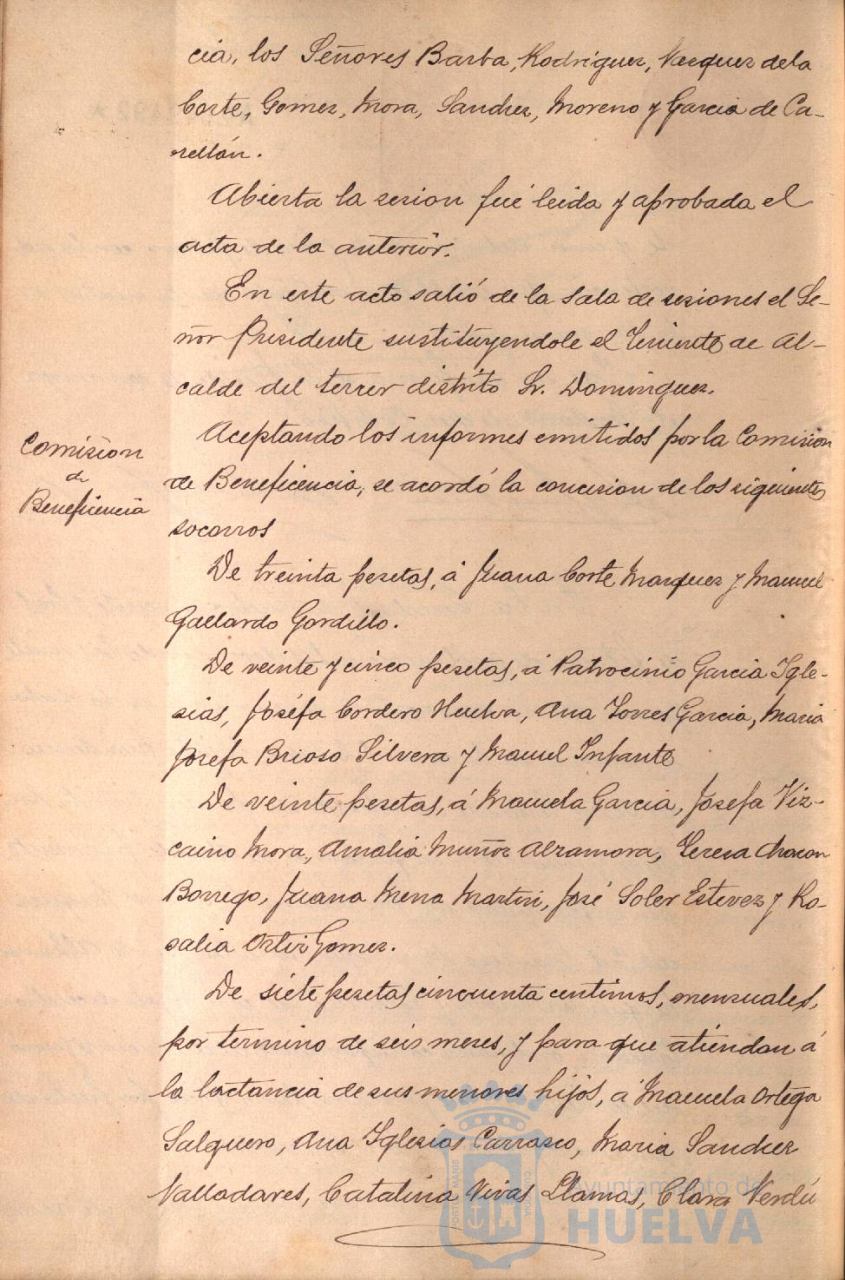 cia, los Señores Barba, Rodriguez, Vazquez de la
Corte, Gomez, Mora, Sanchez, Moreno y Garcia de Ca-
rellán.
Abierta la sesion fué leida y aprobada el
acta de la anterior.
En este acto salió de la sala de sesiones el Se-
ñor Presidente sustituyendole el Teniente de Al-
calde del tercer distrito Sr. Dominguez.
Comision
de
Beneficencia
Aceptando los informes emitidos por la Comision
de Beneficencia, se acordó la concesion de los siguientes
socorros
De treinta pesetas, á Juana Corte Marquez y Manuel
Gallardo Gordillo.
De veinte y cinco pesetas, á Patrocinio Garcia Igle-
sias, Joséfa Cordero Huelva, Ana Torres Garcia, Maria
Josefa Brioso Silvera y Manuel Infante
De veinte pesetas, á Manuela Garcia, Josefa Viz-
caino Mora, Amalia Muñoz Alzamora, Teresa Chacon
Borrego, Juana Mena Martin, José Soler Estevez y Ro-
salia Ortiz Gomez.
De siete pesetas cincuenta centimos, mensuales,
por termino de seis meses, y para que atiendan á
la lactancia de sus menores hijos, á Manuela Ortega
Salguero, Ana Iglesias Carrasco, Maria Sanchez
Valladares, Catalina Vivas Llamas, Clara Verdú
Ayuntamiento de
HUELVA